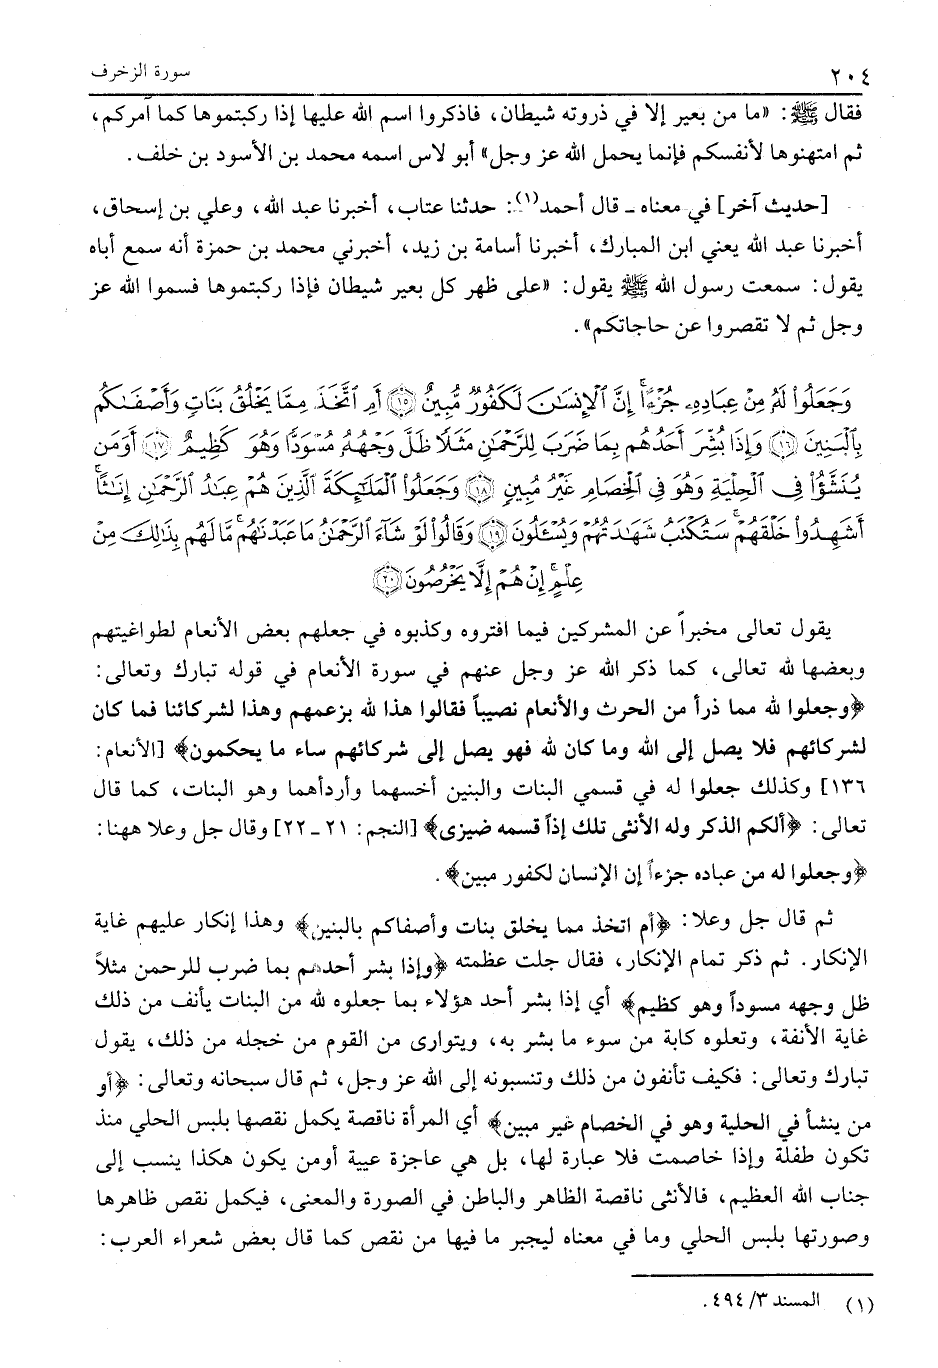 ٢٠٤ سورة الزخرف
فقال ﷺ: «ما من بعير إلا في ذروته شيطان، فاذكروا اسم الله عليها إذا ركبتموها كما آمركم،
ثم امتهنوها لأنفسكم فإنما يحمل الله عز وجل» أبو لاس اسمه محمد بن الأسود بن خلف.
[حديث آخر] في معناه ـ قال أحمد(١): حدثنا عتاب، أخبرنا عبد الله، وعلي بن إسحاق،
أخبرنا عبد الله يعني ابن المبارك، أخبرنا أسامة بن زيد، أخبرني محمد بن حمزة أنه سمع أباه
يقول: سمعت رسول الله ﷺ يقول: «على ظهر كل بعير شيطان فإذا ركبتموها فسموا الله عز
وجل ثم لا تقصروا عن حاجاتكم».
وَجَعَلُوا۟ لَهُۥ مِنْ عِبَادِهِۦ جُزْءًا ۚ إِنَّ ٱلْإِنسَٰنَ لَكَفُورٌ مُّبِينٌ ١٥ أَمِ ٱتَّخَذَ مِمَّا يَخْلُقُ بَنَاتٍ وَأَصْفَىٰكُم
بِٱلْبَنِينَ ١٦ وَإِذَا بُشِّرَ أَحَدُهُم بِمَا ضَرَبَ لِلرَّحْمَٰنِ مَثَلًا ظَلَّ وَجْهُهُۥ مُسْوَدًّا وَهُوَ كَظِيمٌ ١٧ أَوَمَن
يُنَشَّؤُا۟ فِى ٱلْحِلْيَةِ وَهُوَ فِى ٱلْخِصَامِ غَيْرُ مُبِينٍ ١٨ وَجَعَلُوا۟ ٱلْمَلَٰٓئِكَةَ ٱلَّذِينَ هُمْ عِبَٰدُ ٱلرَّحْمَٰنِ إِنَٰثًا ۚ
أَشَهِدُوا۟ خَلْقَهُمْ ۚ سَتُكْتَبُ شَهَٰدَتُهُمْ وَيُسْـَٔلُونَ ١٩ وَقَالُوا۟ لَوْ شَآءَ ٱلرَّحْمَٰنُ مَا عَبَدْنَٰهُم ۗ مَّا لَهُم بِذَٰلِكَ مِنْ
عِلْمٍ ۖ إِنْ هُمْ إِلَّا يَخْرُصُونَ ٢٠
يقول تعالى مخبراً عن المشركين فيما افتروه وكذبوه في جعلهم بعض الأنعام لطواغيتهم
وبعضها لله تعالى، كما ذكر الله عز وجل عنهم في سورة الأنعام في قوله تبارك وتعالى:
﴿وجعلوا لله مما ذرأ من الحرث والأنعام نصيباً فقالوا هذا لله بزعمهم وهذا لشركائنا فما كان
لشركائهم فلا يصل إلى الله وما كان لله فهو يصل إلى شركائهم ساء ما يحكمون﴾ [الأنعام:
١٣٦] وكذلك جعلوا له في قسمي البنات والبنين أخسهما وأردأهما وهو البنات، كما قال
تعالى: ﴿ألكم الذكر وله الأنثى تلك إذاً قسمه ضيزى﴾ [النجم: ٢١ ـ ٢٢] وقال جل وعلا ههنا:
﴿وجعلوا له من عباده جزءاً إن الإنسان لكفور مبين﴾.
ثم قال جل وعلا: ﴿أم اتخذ مما يخلق بنات وأصفاكم بالبنين﴾ وهذا إنكار عليهم غاية
الإنكار. ثم ذكر تمام الإنكار، فقال جلت عظمته ﴿وإذا بشر أحدهم بما ضرب للرحمن مثلاً
ظل وجهه مسوداً وهو كظيم﴾ أي إذا بشر أحد هؤلاء بما جعلوه لله من البنات يأنف من ذلك
غاية الأنفة، وتعلوه كابة من سوء ما بشر به، ويتوارى من القوم من خجله من ذلك، يقول
تبارك وتعالى: فكيف تأنفون من ذلك وتنسبونه إلى الله عز وجل، ثم قال سبحانه وتعالى: ﴿أو
من ينشأ في الحلية وهو في الخصام غير مبين﴾ أي المرأة ناقصة يكمل نقصها بلبس الحلي منذ
تكون طفلة وإذا خاصمت فلا عبارة لها، بل هي عاجزة عيية أومن يكون هكذا ينسب إلى
جناب الله العظيم، فالأنثى ناقصة الظاهر والباطن في الصورة والمعنى، فيكمل نقص ظاهرها
وصورتها بلبس الحلي وما في معناه ليجبر ما فيها من نقص كما قال بعض شعراء العرب:
(١) المسند ٣/ ٤٩٤.